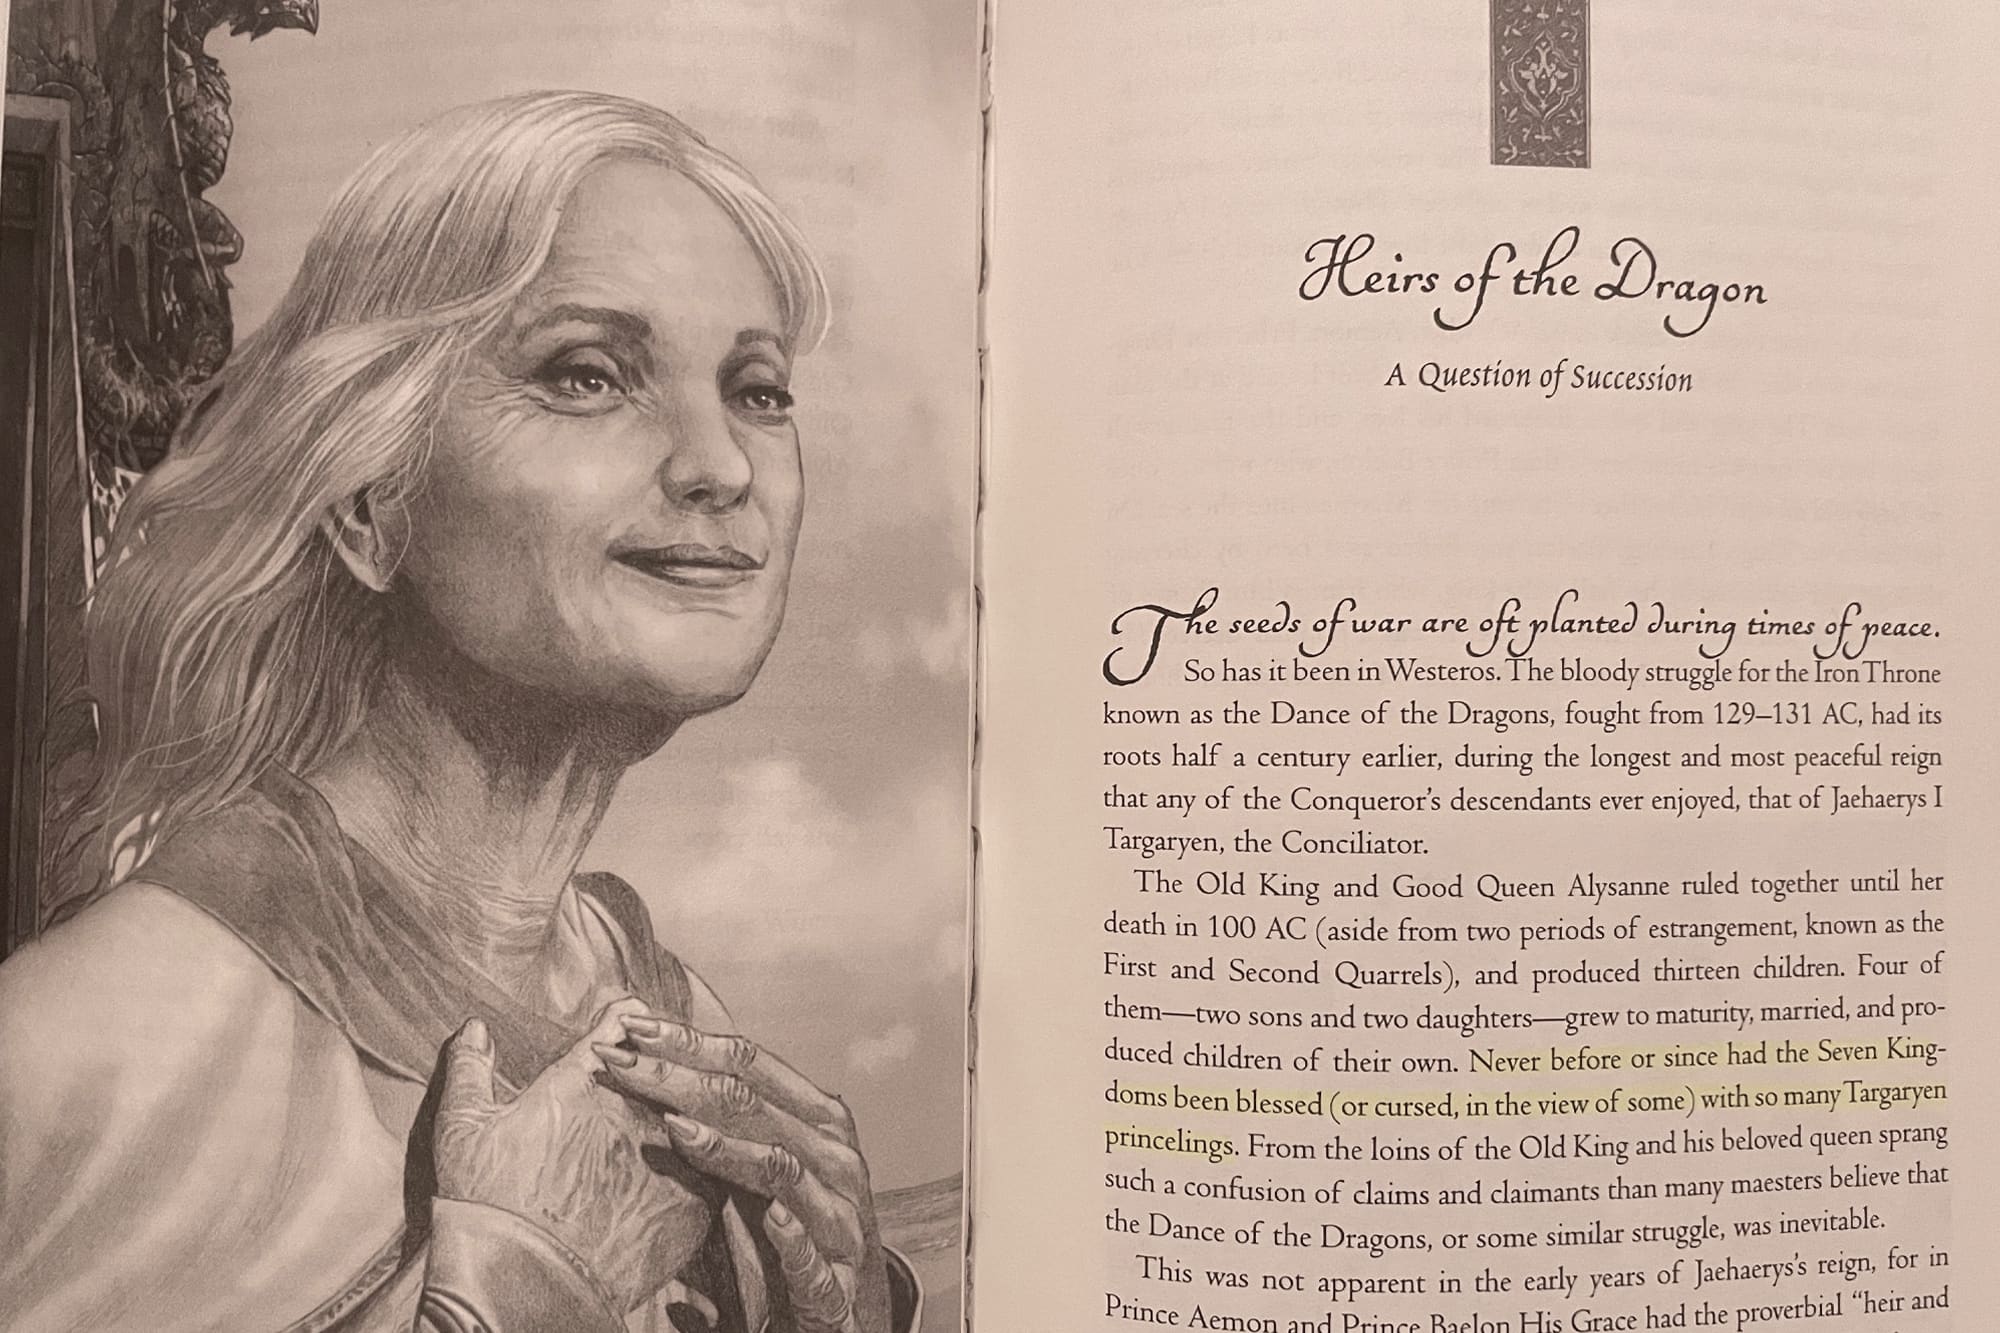 Heirs of the Dragon
A Question of Succession
The seeds of war are oft planted during times of peace.
So has it been in Westeros. The bloody struggle for the Iron Throne
known as the Dance of the Dragons, fought from 129–131 AC, had its
roots half a century earlier, during the longest and most peaceful reign
that any of the Conqueror's descendants ever enjoyed, that of Jaehaerys I
Targaryen, the Conciliator.
The Old King and Good Queen Alysanne ruled together until her
death in 100 AC (aside from two periods of estrangement, known as the
First and Second Quarrels), and produced thirteen children. Four of
them—two sons and two daughters—grew to maturity, married, and pro-
duced children of their own. Never before or since had the Seven King-
doms been blessed (or cursed, in the view of some) with so many Targaryen
princelings. From the loins of the Old King and his beloved queen sprang
such a confusion of claims and claimants than many maesters believe that
the Dance of the Dragons, or some similar struggle, was inevitable.
This was not apparent in the early years of Jaehaerys's reign, for in
Prince Aemon and Prince Baelon His Grace had the proverbial “heir and